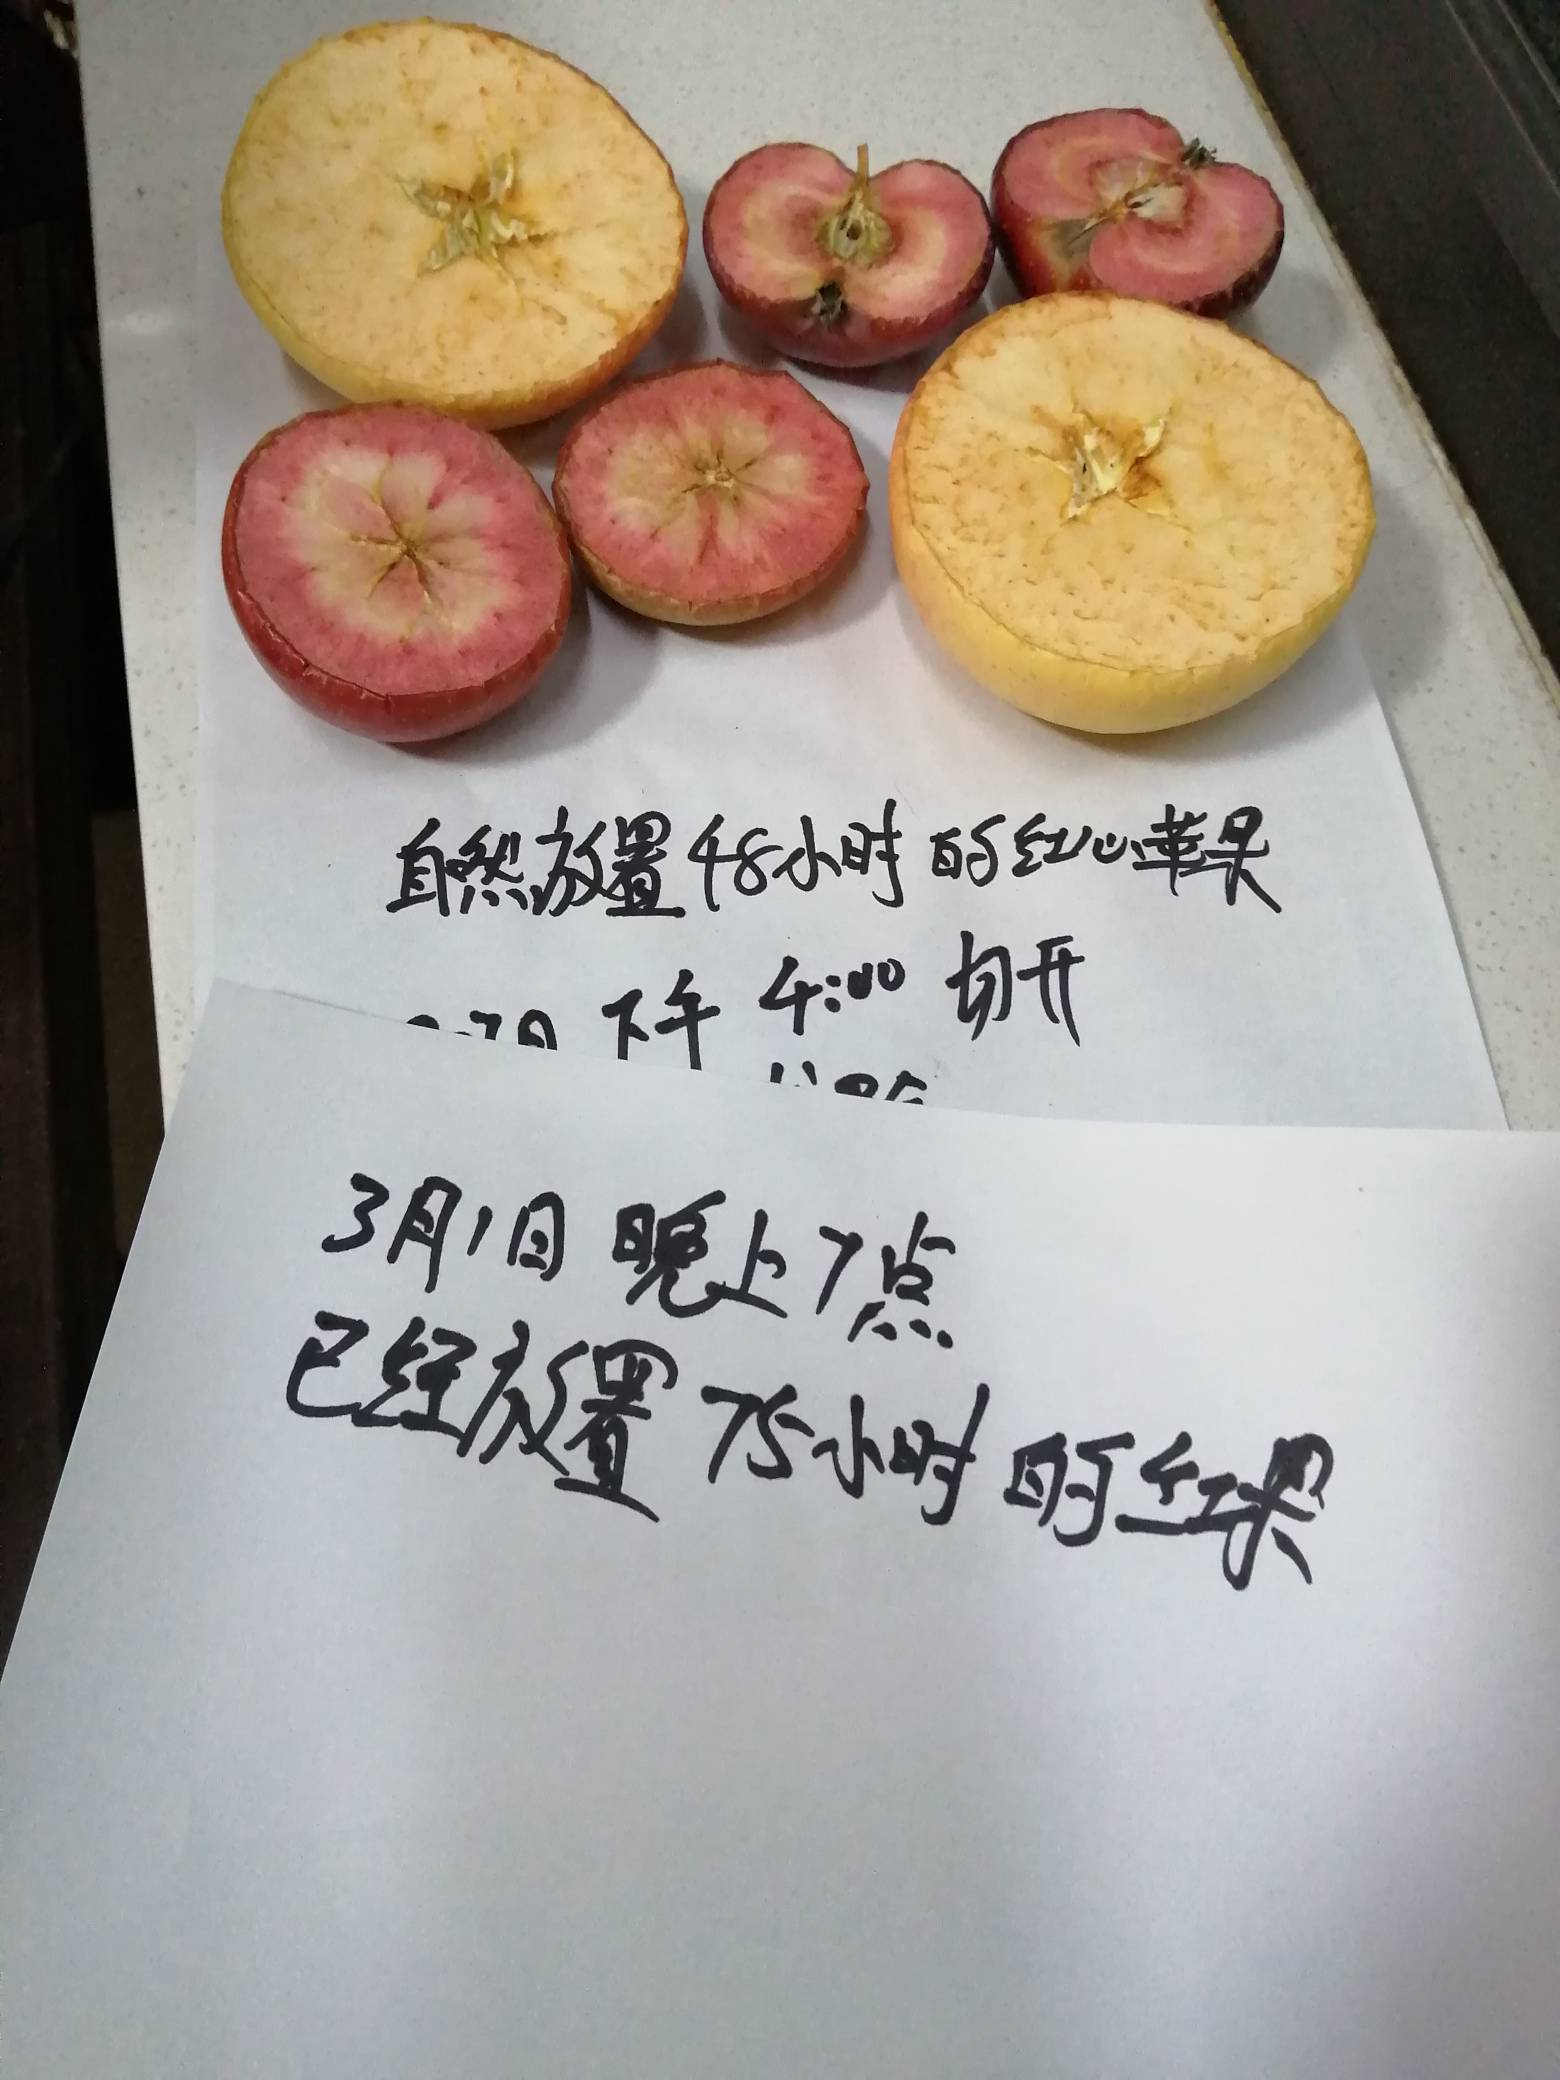 自然放置48小时的红心苹果
下午 4:00 切开
3月1日 晚上7点
已经放置75小时的红果